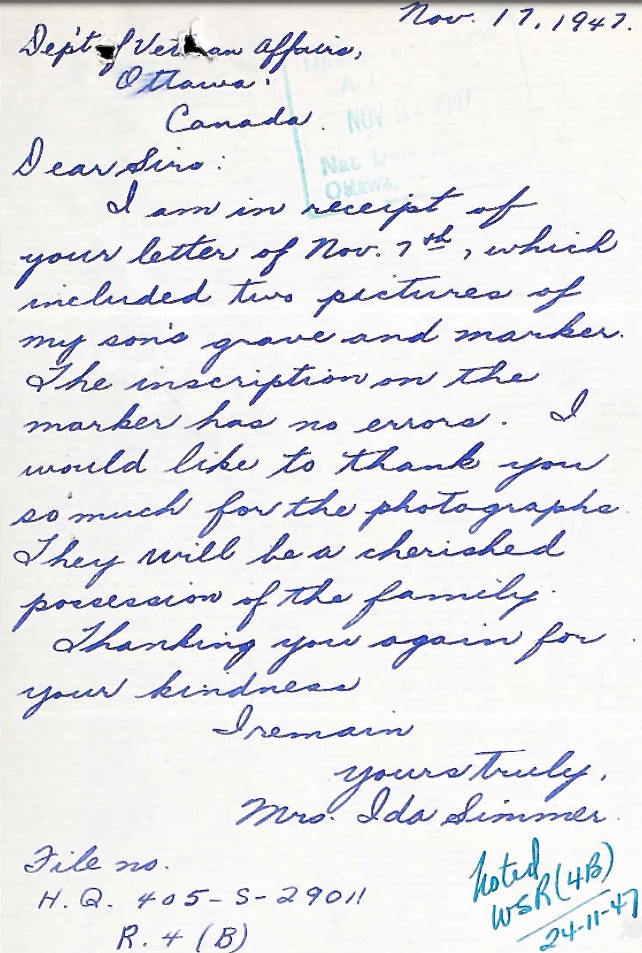 Nov. 17, 1947.
Dep't of Veteran Affairs,
Ottawa.
Canada.
NOV 1947
Nat.
Ottawa,
Dear Sirs:
I am in receipt of
your letter of Nov. 7th, which
included two pictures of
my son's grave and marker.
The inscription on the
marker has no errors. I
would like to thank you
so much for the photographs.
They will be a cherished
possession of the family.
Thanking you again for
your kindness
I remain
yours truly,
Mrs. Ida Simmer.
File no.
H.Q. 405-S-29011
R. 4 (B)
Noted
WSR (4B)
24-11-47